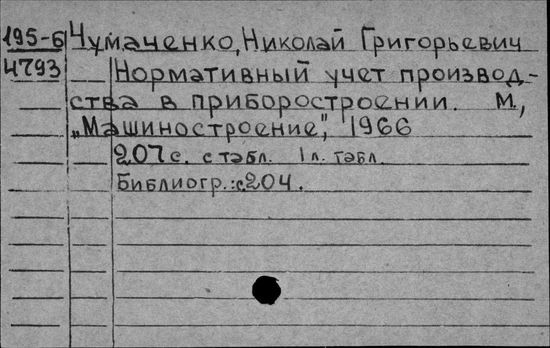 195-6 Чумаченко, Николай Григорьевич
4793 Нормативный учет производ-
ства в приборостроении. М.,
„Машиностроение", 1966
207 с. с табл. 1 л. табл.
Библиогр.: с 204.